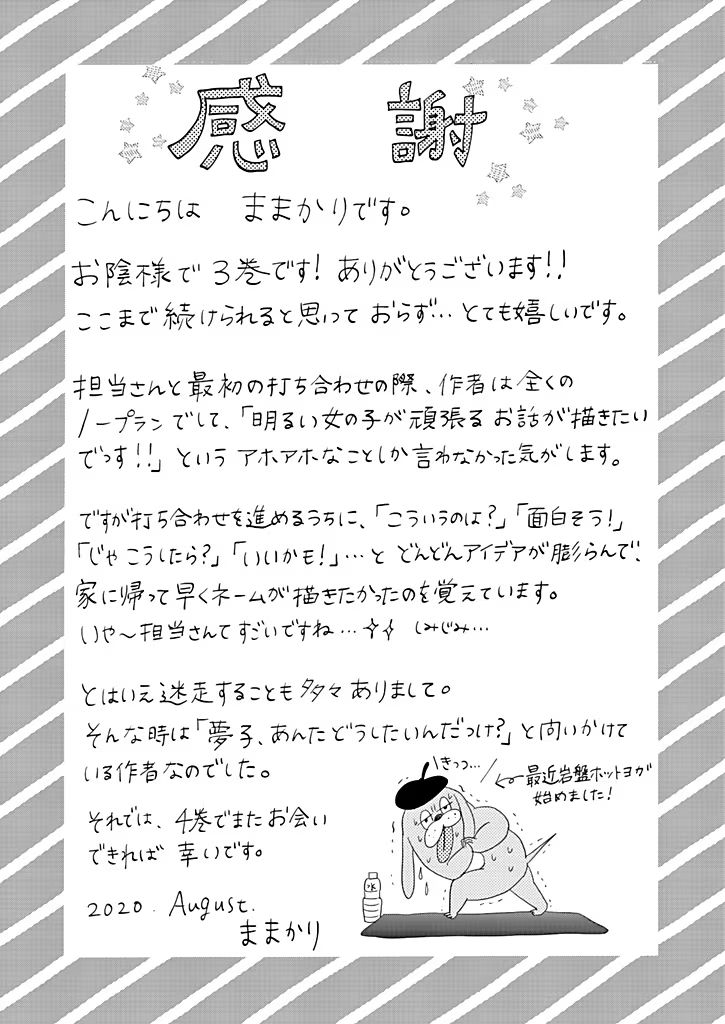 感謝
こんにちは ままかりです。
お陰様で3巻です! ありがとうございます!!
ここまで続けられると思っておらず… とても嬉しいです。
担当さんと最初の打ち合わせの際、作者は全くの
ノープランでして、「明るい女の子が頑張るお話が描きたい
でっす!!」というアホアホなことしか言わなかった気がします。
ですが打ち合わせを進めるうちに、「こういうのは?」「面白そう!」
「じゃこうしたら?」「いいかも!」…と どんどんアイデアが膨らんで、
家に帰って早くネームが描きたかったのを覚えています。
いや〜担当さんてすごいですね… しみじみ…
とはいえ迷走することも多々ありまして。
そんな時は「夢子、あんたどうしたいんだっけ?」と問いかけて
いる作者なのでした。
きっつ…
最近岩盤ホットヨガ
始めました!
それでは、4巻でまたお会い
できれば 幸いです。
水
2020. August.
ままかり